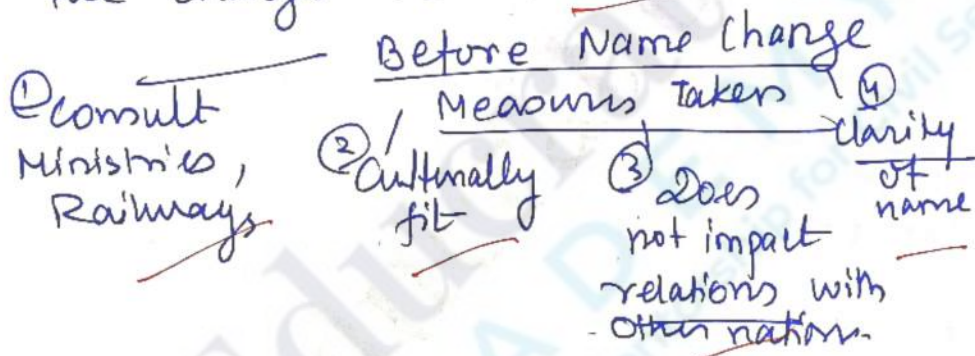 Before Name Change
Measures Taken
① Consult
Ministries,
Railways
② Culturally
fit
③ Does
not impact
relations with
other nations.
④ Clarity
of
name